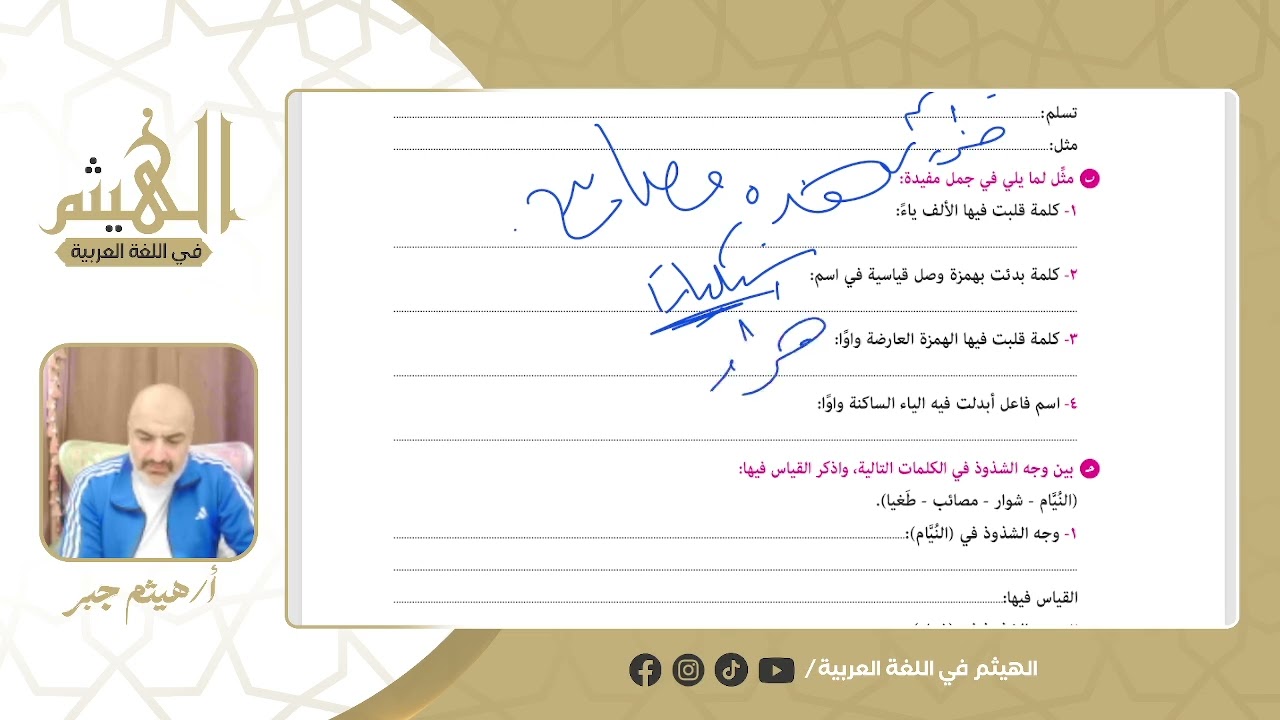 الهيثم
في اللغة العربية
أ/هيثم جبر
تسلم:
مثل:
ب مثِّل لما يلي في جمل مفيدة:
هذه مصابيح
١- كلمة قلبت فيها الألف ياءً:
٢- كلمة بدئت بهمزة وصل قياسية في اسم:
٣- كلمة قلبت فيها الهمزة العارضة واوًا:
٤- اسم فاعل أبدلت فيه الياء الساكنة واوًا:
جـ بين وجه الشذوذ في الكلمات التالية، واذكر القياس فيها:
(النُيَّام - شوار - مصائب - طَغيا).
١- وجه الشذوذ في (النُيَّام):
القياس فيها:
الهيثم في اللغة العربية/